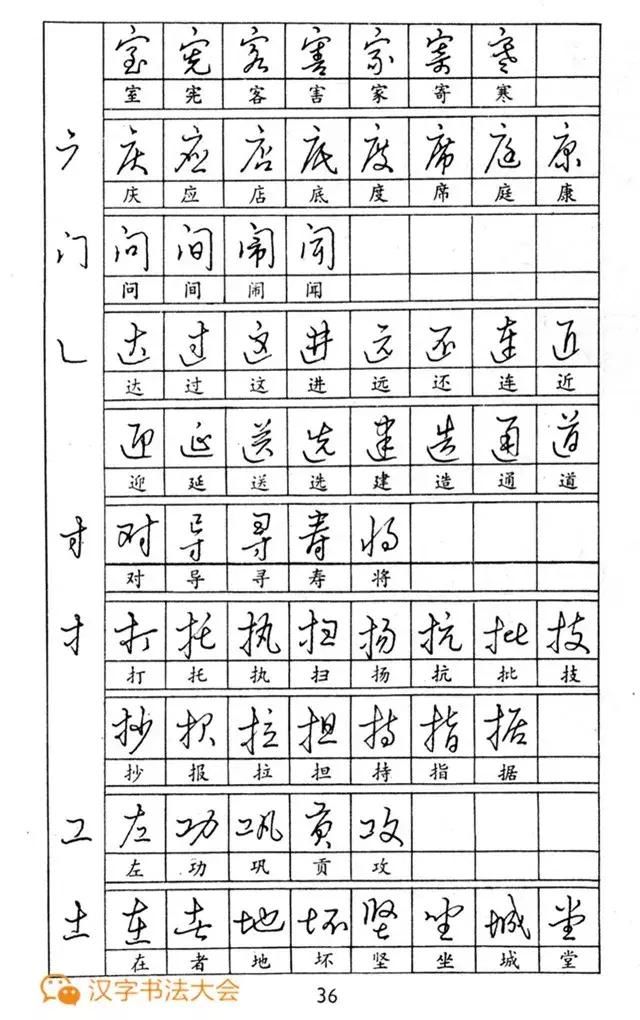 室 宪 客 害 家 寄 寒
室 宪 客 害 家 寄 寒
广 庆 应 店 底 度 席 庭 康
庆 应 店 底 度 席 庭 康
门 问 间 闹 闻
问 间 闹 闻
辶 达 过 这 进 远 还 连 近
达 过 这 进 远 还 连 近
迎 延 送 选 建 造 通 道
迎 延 送 选 建 造 通 道
寸 对 导 寻 寿 将
对 导 寻 寿 将
扌 打 托 执 扫 扬 抗 批 技
打 托 执 扫 扬 抗 批 技
抄 报 拉 担 持 指 据
抄 报 拉 担 持 指 据
工 左 功 巩 贡 攻
左 功 巩 贡 攻
土 在 者 地 坏 坚 坐 城 堂
在 者 地 坏 坚 坐 城 堂
汉字书法大会
36